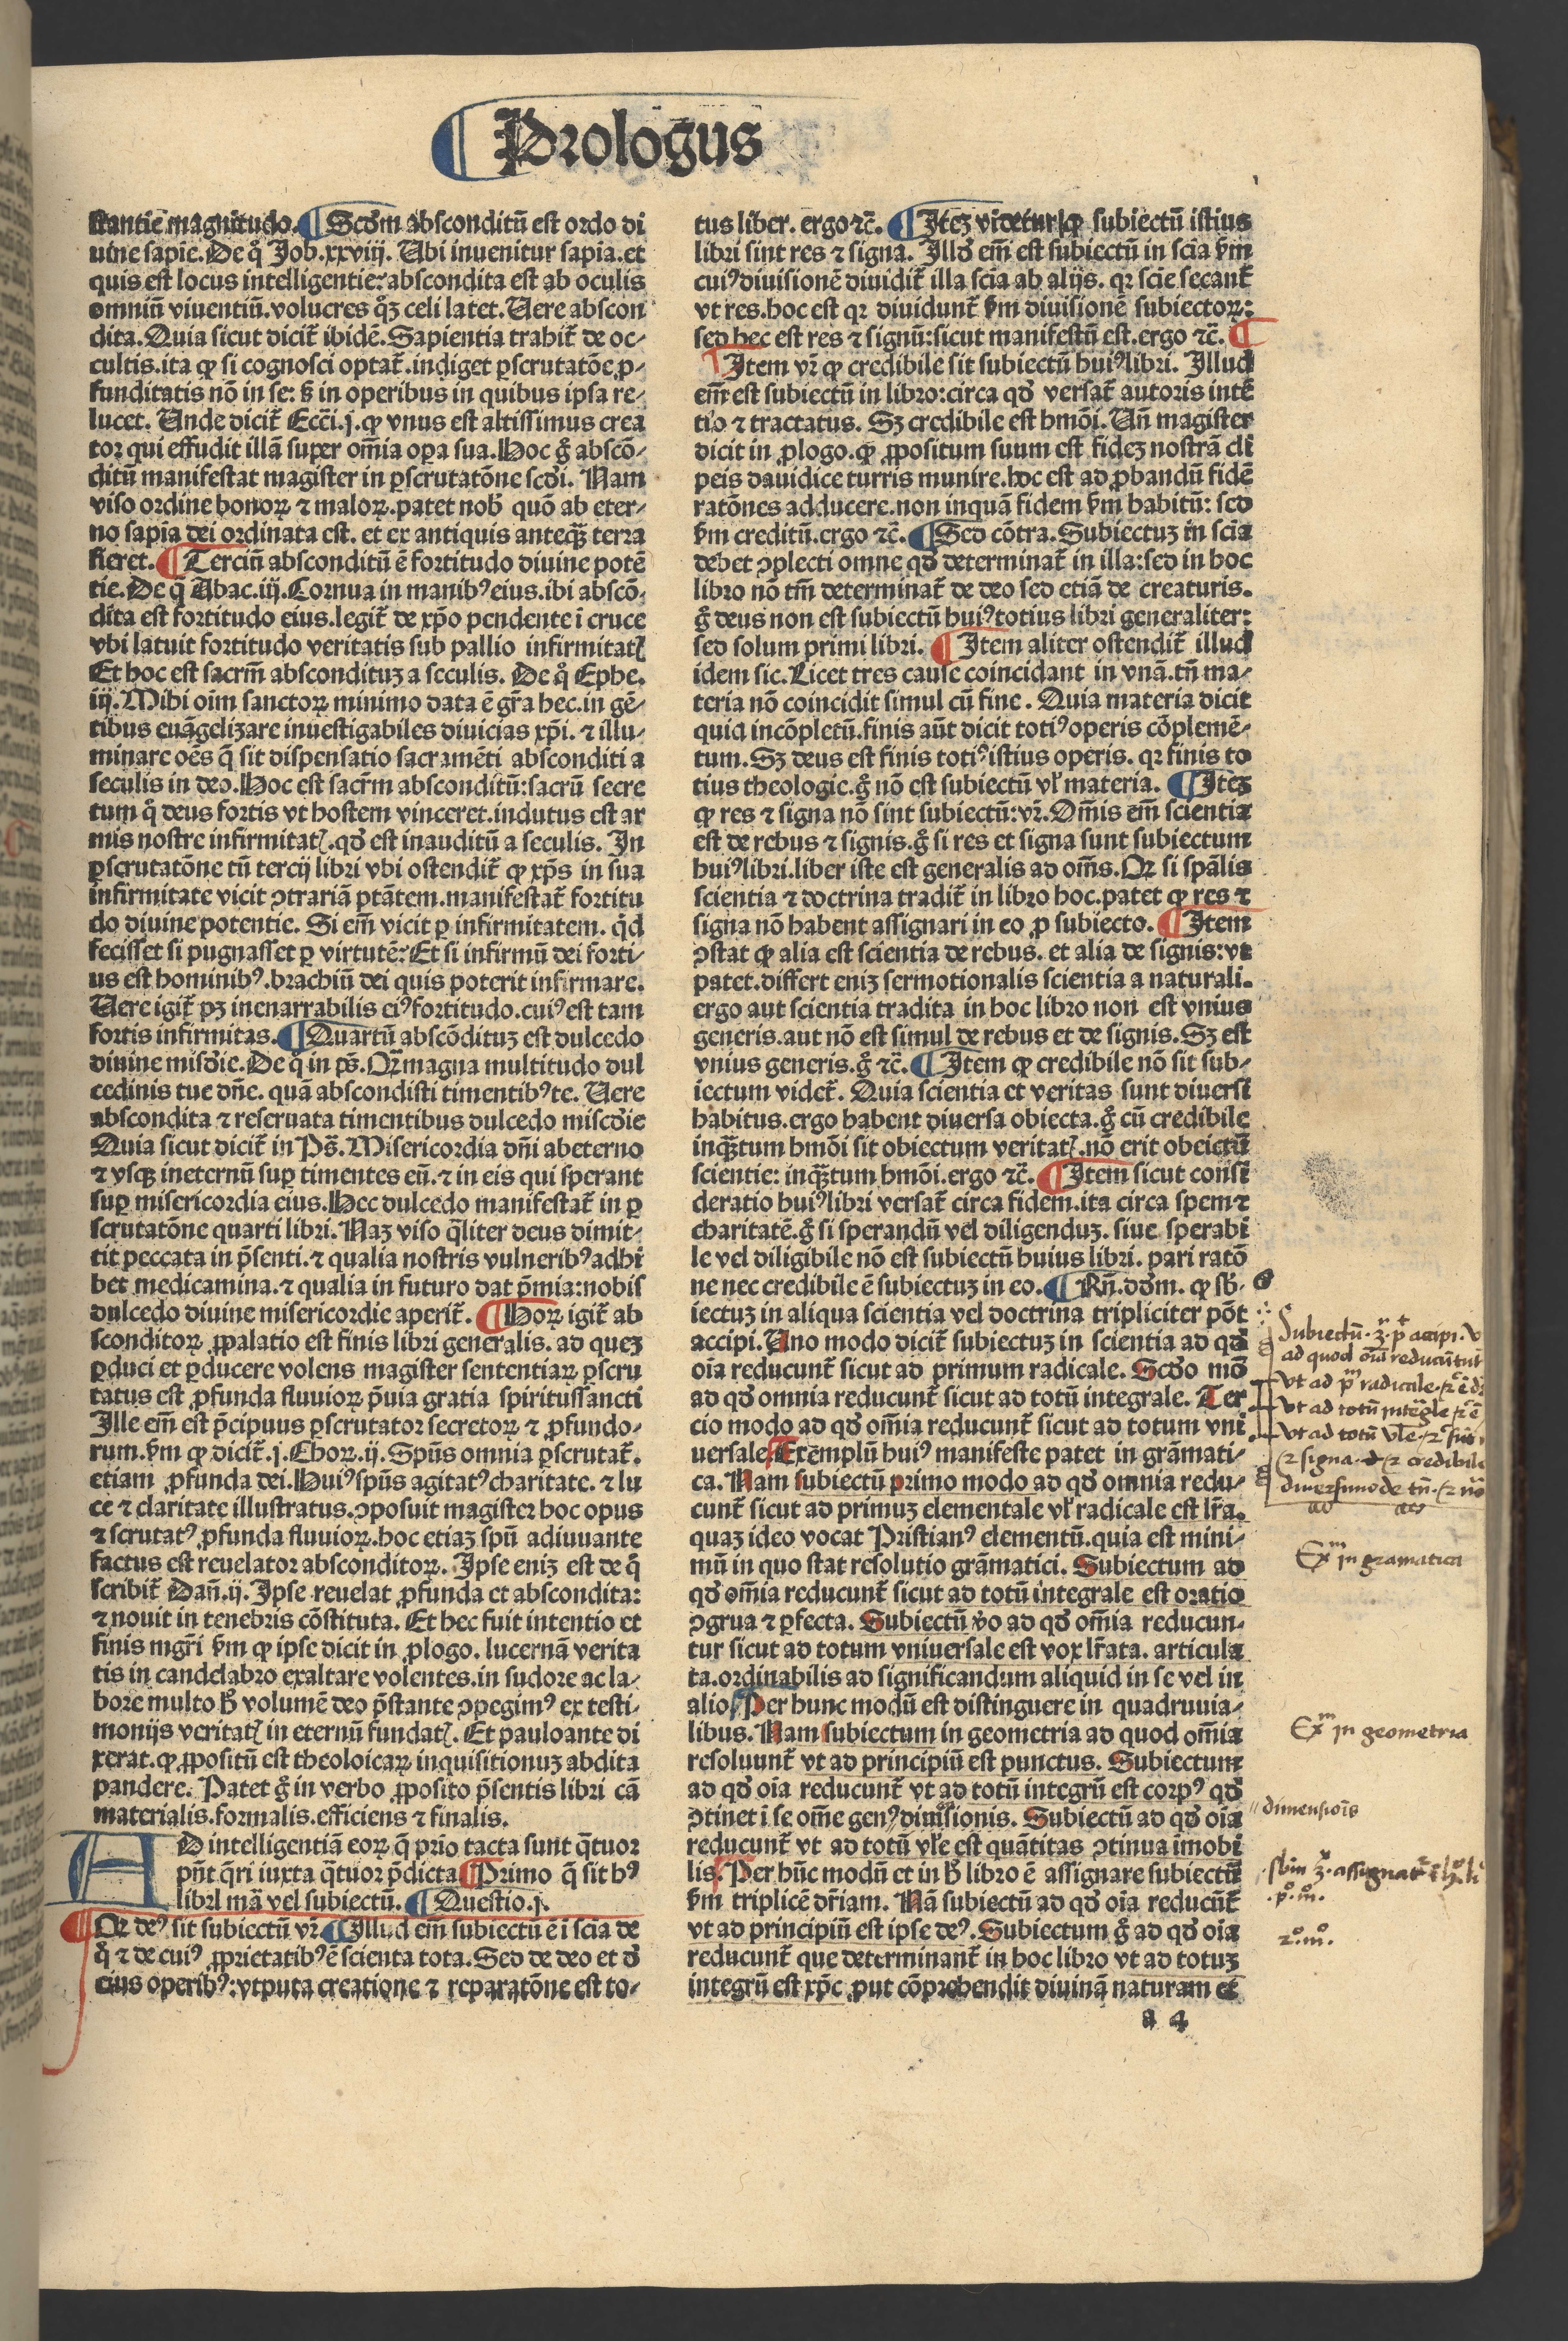 ¶ Prologus
stantie magnitudo. ¶ Scďm absconditū est ordo di
uine sapīe. De q̊ Job. xxviij. Ubi inuenitur sapīa. et
quis est locus intelligentie: abscondita est ab oculis
omniū viuentiū. volucres q̊ꝫ celi latet. Uere abscon
dita. Quia sicut dicit̃ ibidē. Sapientia trahit̃ de oc⸗
cultis. ita ꝙ si cognosci optat̃. indiget ꝑscrutatōe ꝓ⸗
funditatis nō in se: ß in operibus in quibus ipsa re⸗
lucet. Unde dicit̃ Ecc̄i. j. ꝙ vnus est altissimus crea
tor qui effudit illā super om̄ia oꝑa sua. Hoc g̊ abscō⸗
ditū manifestat magister in ꝑscrutatōne scďi. Nam
viso ordine bonoꝝ ⁊ maloꝝ. patet nob̄ quō ab eter⸗
no sapīa dei ordinata est. et ex antiquis anteq̄ꝫ terra
fieret. ¶ Terciū absconditū ē fortitudo diuine potē
tie. De q̊ Abac. iij. Cornua in manibꝰ eius. ibi abscō⸗
dita est fortitudo eius. legit̃ de xp̄o pendente ī cruce
vbi latuit fortitudo veritatis sub pallio infirmitatꝭ
Et hoc est sacr̄m absconditꝫ a seculis. De q̊ Ephe.
iij. Mihi oīm sanctoꝝ minimo data ē gr̄a hec. in gē⸗
tibus euāgelizare inuestigabiles diuicias xp̄i. ⁊ illu⸗
minare oēs q̄ sit dispensatio sacramēti absconditi a
seculis in deo. Hoc est sacr̄m absconditū: sacrū secre
tum q̊ deus fortis vt hostem vinceret. indutus est ar
mis nostre infirmitatꝭ. qď est inauditū a seculis. In
ꝑscrutatōne tn̄ tercij libri vbi ostendit̃ ꝙ xp̄s in sua
infirmitate vicit ↄtrariā ptātem. manifestat̃ fortitu
do diuine potentie. Si em̄ vicit ꝑ infirmitatem. q̇d
fecisset si pugnasset ꝑ virtutē: Et si infirmū dei forti⸗
us est hominibꝰ. brachiū dei quis poterit infirmare.
Uere igit̃ pꝫ inenarrabilis eiꝰ fortitudo. cuiꝰ est tam
fortis infirmitas. ¶ Quartū abscōditꝫ est dulcedo
diuine misďie. De q̊ in pš. Qm̄ magna multitudo dul
cedinis tue dn̄e. quā abscondisti timentibꝰ te. Uere
abscondita ⁊ reseruata timentibus dulcedo miscďie
Quia sicut dicit̃ in Pš. Misericordia dn̄i ab eterno
⁊ vsqꝫ in eternū suꝑ timentes eū. ⁊ in eis qui sperant
suꝑ misericordia eius. Hec dulcedo manifestat̃ in ꝑ
scrutatōne quarti libri. Naꝫ viso q̄liter deus dimit⸗
tit peccata in p̄senti. ⁊ qualia nostris vulneribꝰ adhi
bet medicamina. ⁊ qualia in futuro dat p̄mia: nobis
dulcedo diuine misericordie aperit̃. ¶ Hoꝝ igit̃ ab
sconditoꝝ ꝓpalatio est finis libri generalis. ad queꝫ
ꝑduci et ꝑducere volens magister sententiaꝝ ꝑscru
tatus est ꝓfunda fluuioꝝ p̄uia gratia spiritussancti
Ille em̄ est p̄cipuus ꝑscrutator secretoꝝ ⁊ ꝓfundo⸗
rum. ßm ꝙ dicit̃. j. Choꝝ. ij. Spūs omnia ꝑscrutat̃.
etiam ꝓfunda dei. Huiꝰ spūs agitatꝰ charitate. ⁊ lu
ce ⁊ claritate illustratus. ↄposuit magister hoc opus
⁊ scrutatꝰ ꝓfunda fluuioꝝ. hoc etiaꝫ spū adiuuante
factus est reuelator absconditoꝝ. Ipse eniꝫ est de q̊
scribit̃ Dan̄. ij. Ipse reuelat ꝓfunda et abscondita:
⁊ nouit in tenebris cōstituta. Et hec fuit intentio et
finis mgr̄i ßm ꝙ ipse dicit in ꝓlogo. lucernā verita
tis in candelabro exaltare volentes. in sudore ac la⸗
bore multo h̊ volumē deo p̄stante ↄpegimꝰ ex testi⸗
monijs veritatꝭ in eternū fundatꝭ. Et pauloante di
xerat. ꝙ ꝓpositū est theoloicaꝝ inquisitionuꝫ abdita
pandere. Patet g̊ in verbo ꝓposito p̄sentis libri cā
materialis. formalis. efficiens ⁊ finalis.
AD intelligentiā eoꝝ q̄ prīo tacta sunt q̄tuor
pn̄t q̄ri iuxta q̄tuor p̄dicta ¶ Primo q̄ sit hꝰ
libri mā vel subiectū. ¶ Questio. j.
¶ Qr deꝰ sit subiectū vr̄. ¶ Illud em̄ subiectū ē ī scīa de
q̊ ⁊ de cuiꝰ ꝓprietatibꝰ ē scienta tota. Sed de deo et ď
eius operibꝰ: vtputa creatione ⁊ reparatōne est to⸗
tus liber. ergo ⁊c̄. ¶ Iteꝫ videtur ꝙ subiectū istius
libri sint res ⁊ signa. Illď em̄ est subiectū in scīa ßm
cuiꝰ diuisionē diuidit̃ illa scīa ab alijs. qr scīe secant̃
vt res. hoc est qr diuidunt̃ ßm diuisionē subiectoꝝ:
sed hec est res ⁊ signū: sicut manifestū est. ergo ⁊c̄. ¶
Item vr̄ ꝙ credibile sit subiectū huiꝰ libri. Illud
em̄ est subiectū in libro: circa qď versat̃ autoris intē
tio ⁊ tractatus. Sꝫ credibile est hmōi. Un̄ magister
dicit in ꝓlogo. ꝙ ꝓpositum suum est fideꝫ nostrā cli
peis dauidice turris munire. hoc est ad ꝓbandū fidē
ratōnes adducere. non inquā fidem ßm habitū: sed
ßm creditū. ergo ⁊c̄. ¶ Sed cōtra. Subiectuꝫ in scīa
debet ↄplecti omne qď determinat̃ in illa: sed in hoc
libro nō tm̄ determinat̃ de deo sed etiā de creaturis.
g̊ deus non est subiectū huiꝰ totius libri generaliter:
sed solum primi libri. ¶ Item aliter ostendit̃ illud
idem sic. Licet tres cause coincidant in vnā. tn̄ ma⸗
teria nō coincidit simul cū fine. Quia materia dicit
quid incōpletū. finis aūt dicit totiꝰ operis cōplemē⸗
tum. Sꝫ deus est finis totiꝰ istius operis. qr finis to
tius theologie. g̊ nō est subiectū vl̓ materia. ¶ Iteꝫ
ꝙ res ⁊ signa nō sint subiectū: vr̄. Om̄is em̄ scientia
est de rebus ⁊ signis. g̊ si res et signa sunt subiectum
huiꝰ libri. liber iste est generalis ad om̄s. Qr si spālis
scientia ⁊ doctrina tradit̃ in libro hoc. patet ꝙ res ⁊
signa nō habent assignari in eo ꝓ subiecto. ¶ Item
ↄstat ꝙ alia est scientia de rebus. et alia de signis: vt
patet. differt eniꝫ sermotionalis scientia a naturali.
ergo aut scientia tradita in hoc libro non est vnius
generis. aut nō est simul de rebus et de signis. Sꝫ est
vnius generis. g̊ ⁊c̄. ¶ Item ꝙ credibile nō sit sub⸗
iectum videt̃. Quia scientia et veritas sunt diuersi
habitus. ergo habent diuersa obiecta. g̊ cū credibile
inq̄ꝫtum hmōi sit obiectum veritatꝭ. nō erit obeictū
scientie: inq̄ꝫtum hmōi. ergo ⁊c̄. ¶ Item sicut consi
deratio huiꝰ libri versat̃ circa fidem. ita circa spem ⁊
charitatē. g̊ si sperandū vel diligenduꝫ. siue sperabi
le vel diligibile nō est subiectū huius libri. pari ratō
ne nec credibile ē subiectuꝫ in eo. ¶ Rn̄. dďm. ꝙ sb⸗
iectuꝫ in aliqua scientia vel doctrina tripliciter pōt
accipi. Uno modo dicit̃ subiectuꝫ in scientia ad qď
oīa reducunt̃ sicut ad primum radicale. Scďo mō
ad qď omnia reducunt̃ sicut ad totū integrale. Ter
cio modo ad qď om̄ia reducunt̃ sicut ad totum vni
uersale. Exemplū huiꝰ manifeste patet in grāmati⸗
ca. Nam subiectū primo modo ad qď omnia redu⸗
cunt̃ sicut ad primuꝫ elementale vl̓ radicale est lr̄a.
quaꝫ ideo vocat Pristianꝰ elementū. quia est mini⸗
mū in quo stat resolutio grāmatici. Subiectum ad
qď om̄ia reducunt̃ sicut ad totū integrale est oratio
ↄgrua ⁊ ꝑfecta. Subiectū v̊o ad qď om̄ia reducun⸗
tur sicut ad totum vniuersale est vox lr̄ata. articula
ta. ordinabilis ad significandum aliquid in se vel in
alio. Per hunc modū est distinguere in quadruuia⸗
libus. Nam subiectum in geometria ad quod om̄ia
resoluunt̃ vt ad principiū est punctus. Subiectum
ad qď oīa reducunt̃ vt ad totū integrū est corpꝰ qď
ↄtinet ī se om̄e genꝰ diuisionis. Subiectū ad qď oīa
reducunt̃ vt ad totū vl̓e est quātitas ↄtinua īmobi
lis. Per hūc modū et in h̊ libro ē assignare subiectū
ßm triplicē dr̄iam. Nā subiectū ad qď oīa reducūt̃
vt ad principiū est ipse deꝰ. Subiectum g̊ ad qď oīa
reducunt̃ que determinant̃ in hoc libro vt ad totuꝫ
integrū est xp̄c ꝓut cōprehendit diuinā naturam et
a 4
Subiectū. 3. pt̃ accipi. v
ad quod oīa reducūtur
vt ad pm radicale.
vt ad totū integrale
vt ad totū vl̓e
⁊ signa ⁊ credibile
diuersimode tn̄.
Exm in gramatica
Exm in geometria
dimensiōis
sbm 3r assignat̃
.po. mo.
2o. mo.